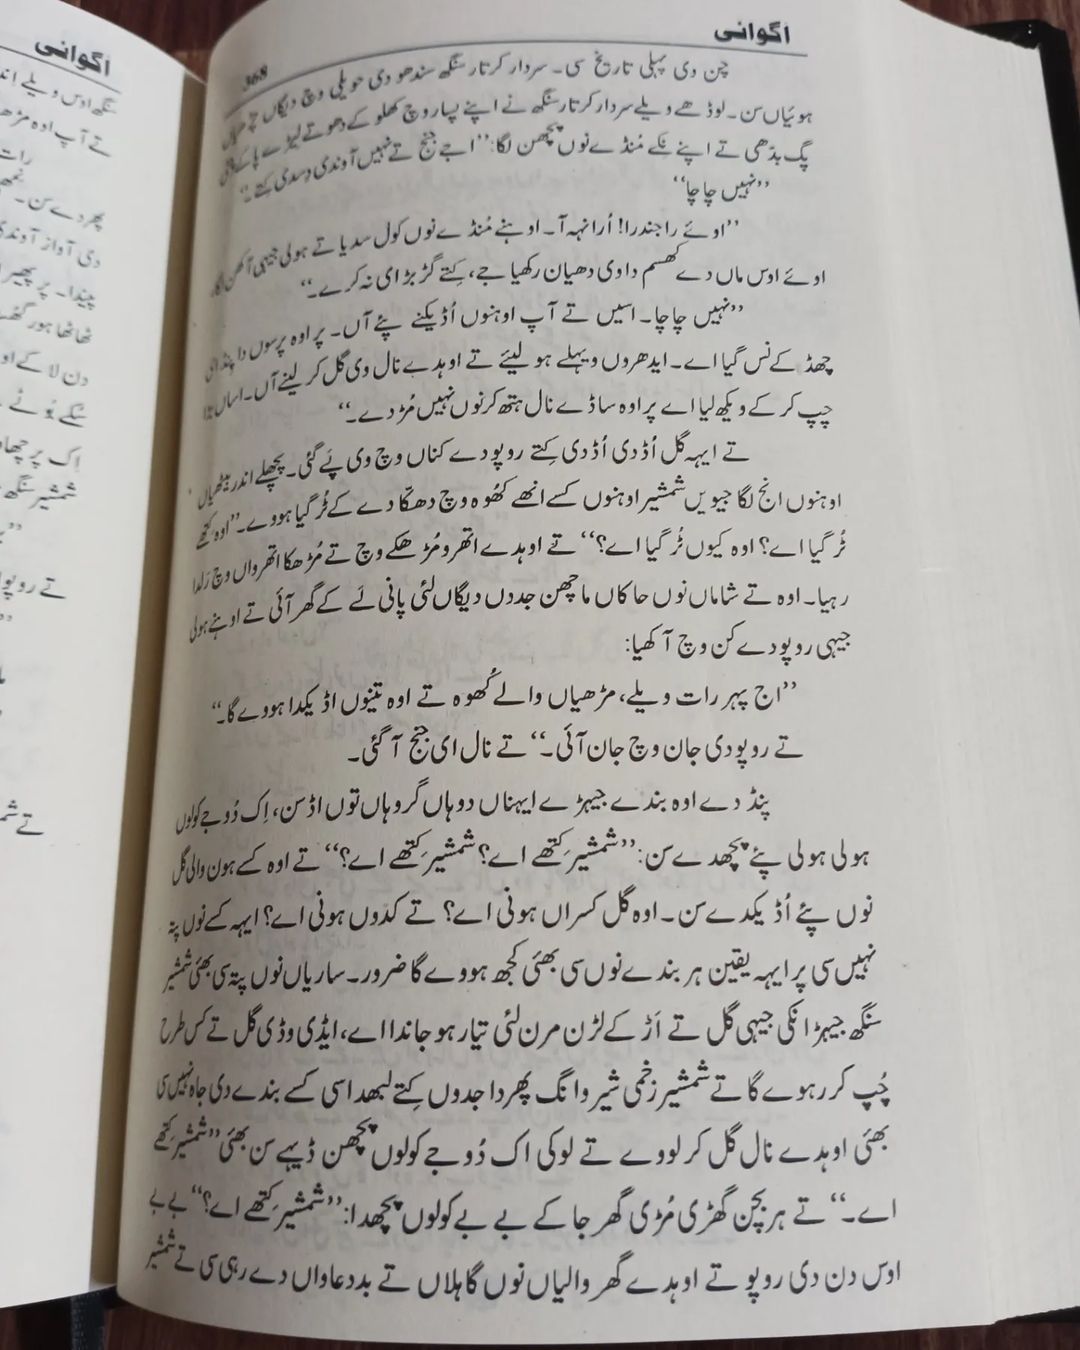 اگوانی
368
چن دی پہلی تاریخ سی۔ سردار کرتار سنگھ سندھو دی حویلی وچ دیگاں چڑھیاں
ہوئیاں سن۔ لوڈھے ویلے سردار کرتار سنگھ نے اپنے پسار وچ کھلو کے دھوتے لیڑے پا کے
پگ بدّھی تے اپنے نکے مُنڈے نوں پچھن لگا: ’’اجے جنج تے نہیں آوندی دِسدی کِتے۔‘‘
’’نہیں چاچا‘‘
’’اوئے راجندرا! اُرانہہ آ۔ اوہنے مُنڈے نوں کول سدیا تے ہولی جیہی آکھن لگا،
اوئے اوس ماں دے کھسم دا وی دھیان رکھیا جے، کِتے گڑبڑ ای نہ کرے۔‘‘
’’نہیں چاچا۔ اسیں تے آپ اوہنوں اُڈیکنے پئے آں۔ پر اوہ پرسوں دا پنڈ ای
چھڈ کے نس گیا اے۔ ایدھروں ویہلے ہو لیئے تے اوہدے نال وی گل کر لینے آں۔ اساں بڑا
چپ کر کے ویکھ لیا اے پر اوہ ساڈے نال ہتھ کرنوں نہیں مُڑدے۔‘‘
تے ایہہ گل اُڈدی اُڈدی کِتے روپو دے کناں وچ وی پَے گئی۔ پچھلے اندر بیٹھیاں
اوہنوں انج لگا جیویں شمشیر اوہنوں کسے انھے کھُوہ وچ دھکّا دے کے ٹُر گیا ہووے۔ ’’اوہ کِتھے
ٹُر گیا اے؟ اوہ کیوں ٹُر گیا اے؟‘‘ تے اوہدے اتھرو مُڑھکے وچ تے مُڑھکا اتھرواں وچ رَلدا
رہیا۔ اوہ تے شاماں نوں حاکاں ماچھن جددں دیگاں لئی پانی لَے کے گھر آئی تے اوہنے ہولی
جیہی روپو دے کن وچ آکھیا:
’’اج پہر رات ویلے، مڑھیاں والے کُھوہ تے اوہ تینوں اڈیکدا ہووے گا۔‘‘
تے روپو دی جان وچ جان آئی۔‘‘ تے نال ای جنج آ گئی۔
پنڈ دے اوہ بندے جیہڑے ایہناں دوہاں گروہاں توں اڈ سن، اِک دُوجے کولوں
ہولی ہولی پئے پچھدے سن: ’’شمشیر کِتھے اے؟ شمشیر کِتھے اے؟‘‘ تے اوہ کسے ہون والی گل
نوں پئے اُڈیکدے سن۔ اوہ گل کسراں ہونی اے؟ تے کدّوں ہونی اے؟ ایہہ کسے نوں پتہ
نہیں سی پر ایہہ یقین ہر بندے نوں سی بھئی کجھ ہووے گا ضرور۔ ساریاں نوں پتہ سی بھئی شمشیر
سنگھ جیہڑا نِکی جیہی گل تے اَڑ کے لڑن مرن لئی تیار ہو جاندا اے، ایڈی وڈی گل تے کس طرح
چُپ کر رہوے گا تے شمشیر زخمی شیر وانگ پھردا جدوں کِتے لبھدا سی کسے بندے دی جاہ نہیں سی
بھئی اوہدے نال گل کر لووے تے لوکی اک دُوجے کولوں پچھن ڈیہے سن بھئی ’’شمشیر کِتھے
اے۔‘‘ تے ہر بچن گھڑی مُڑی گھر جا کے بے بے کولوں پچھدا: ’’شمشیر کِتھے اے؟‘‘ بے بے
اوس دن دی روپو تے اوہدے گھر والیاں نوں گاہلاں تے بددعاواں دے رہی سی تے شمشیر